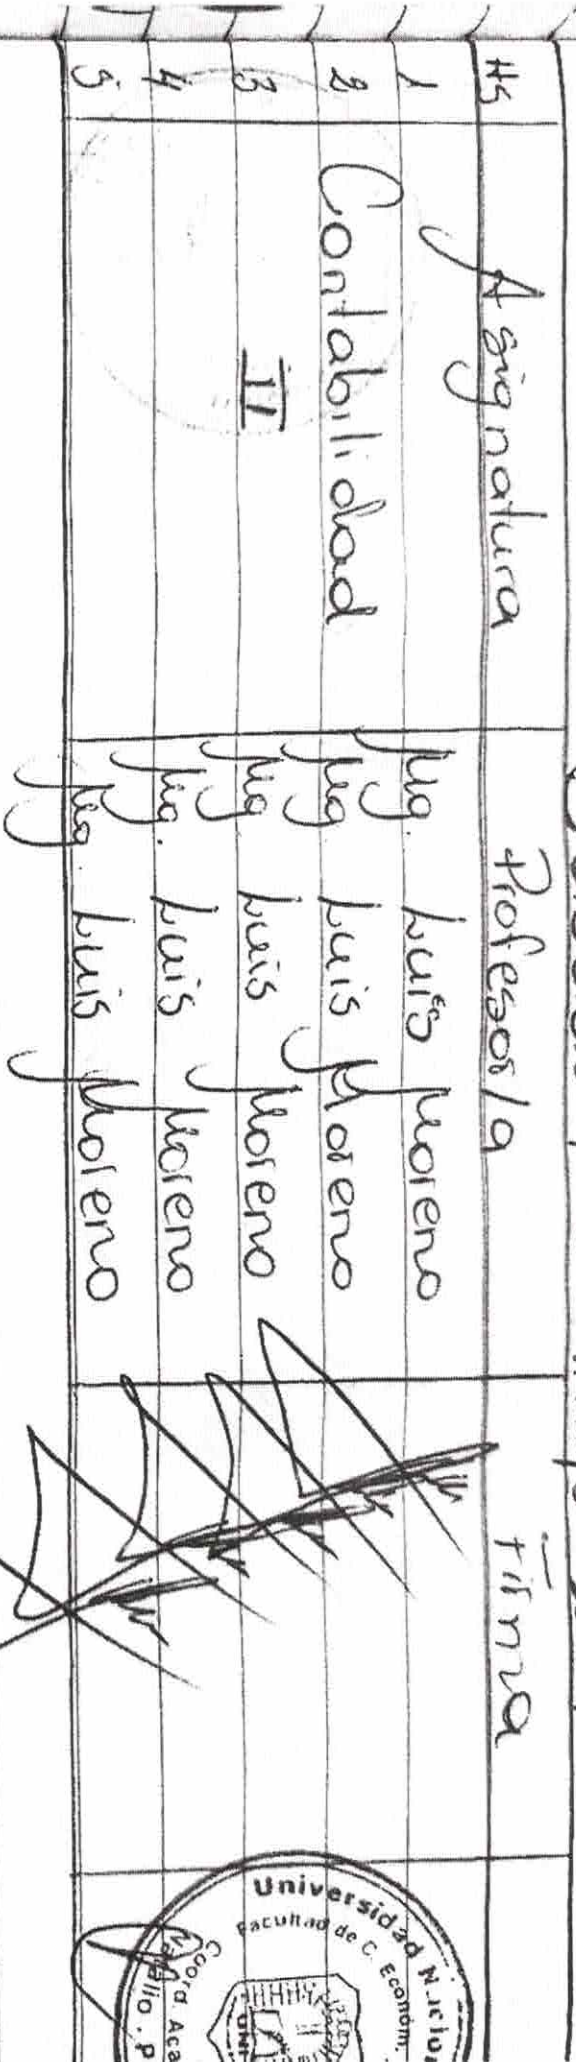 Hs Asignatura Profesor/a Firma
1 Mg. Luis Moreno
2 Contabilidad Mg Luis Moreno
3 II Mg Luis Moreno
4 Mg. Luis Moreno
5 Mg. Luis Moreno
Universidad Nacio
Facultad de C. Económ.
Coord. Aca